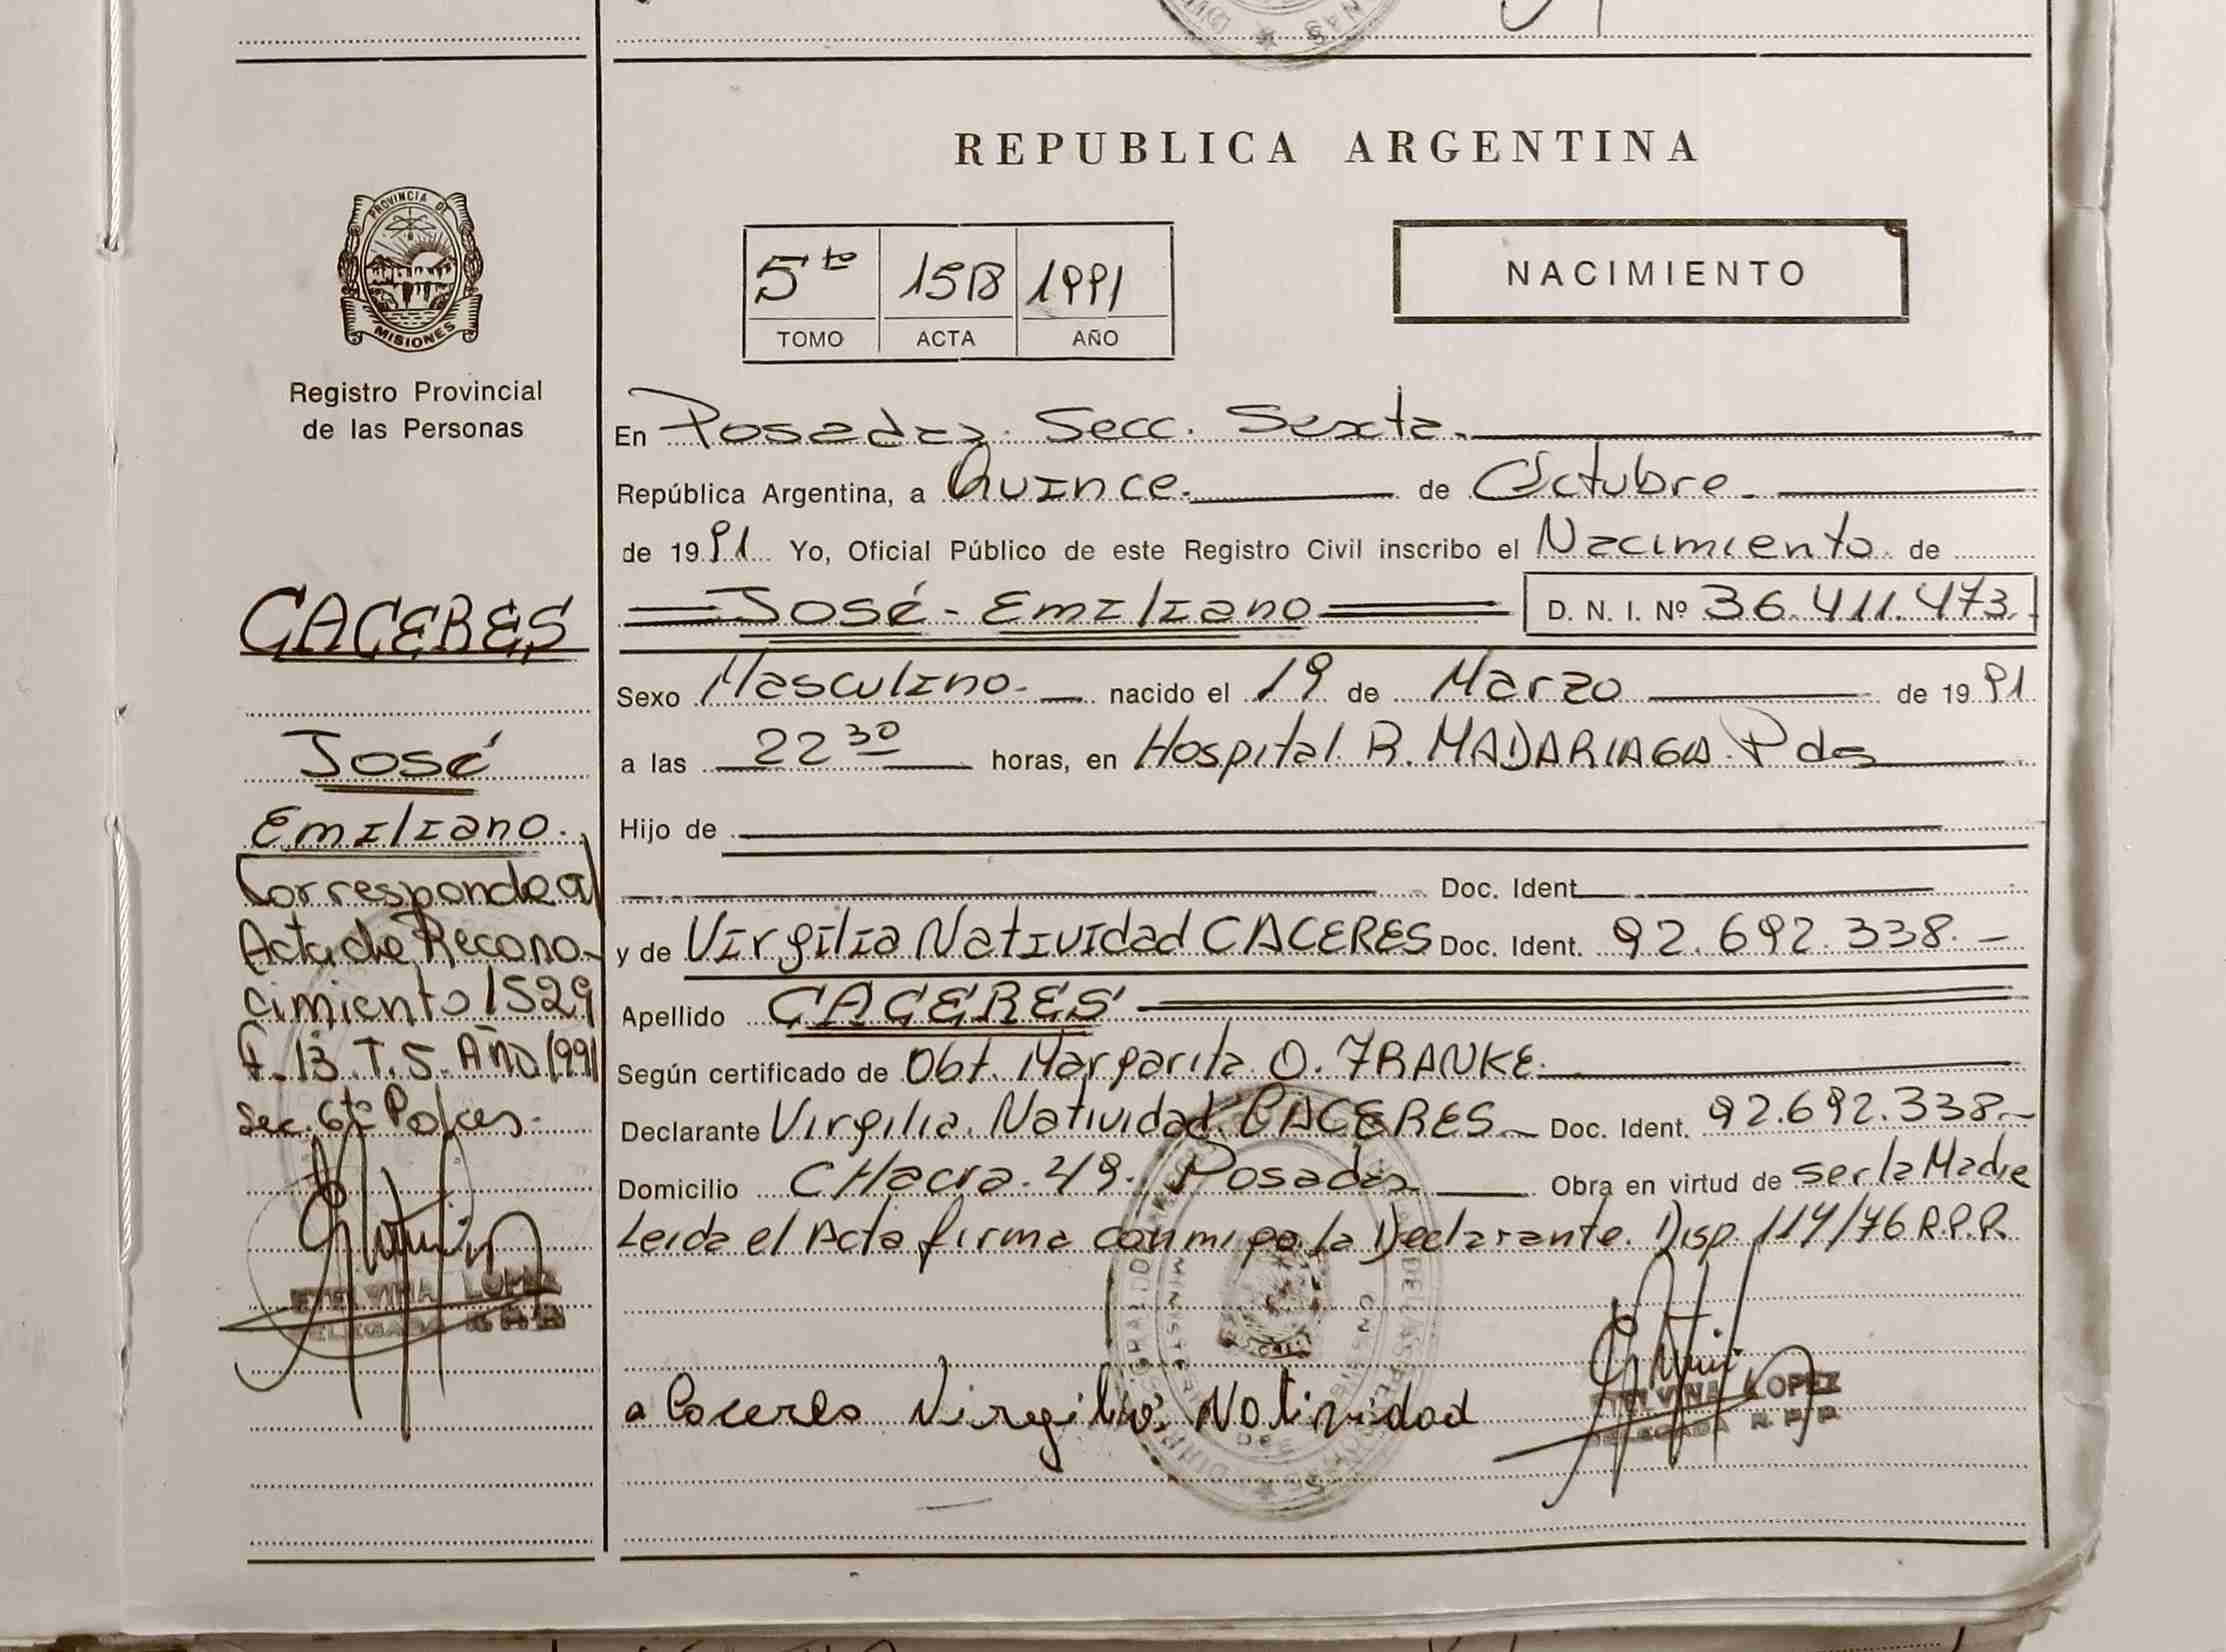 REPUBLICA ARGENTINA
PROVINCIA DE
MISIONES
Registro Provincial
de las Personas
5to 1513 1991
TOMO ACTA AÑO
NACIMIENTO
En Posadas. Secc. Sexta.
República Argentina, a Quince. de Octubre.
de 1991 Yo, Oficial Público de este Registro Civil inscribo el Nacimiento de
José - Emiliano D. N. I. Nº 36.411.473.
Sexo Masculino. nacido el 19 de Marzo de 1991
a las 22 30 horas, en Hospital. R. MADARIAGA. Pdas
Hijo de
Doc. Ident
y de Virgilia Natividad CACERES Doc. Ident. 92.692.338.-
Apellido CACERES
Según certificado de Obt. Margarita O. FRANKE.
Declarante Virgilia. Natividad. CACERES Doc. Ident. 92.692.338.-
Domicilio CHacra. 49. Posadas Obra en virtud de ser la Madre
Leida el Acta firma conmigo la Declarante. Disp. 114/76 R.P.P.
a Caceres Virgilia Natividad
ETELVINA LOPEZ
DELEGADA R.P.P.
CACERES
José
Emiliano.
Corresponde al
Acta de Recono-
cimiento 1529
F. 13. T. 5. AÑO 1991
Sec. 6ta
ETELVINA LOPEZ
DELEGADA R.P.P.